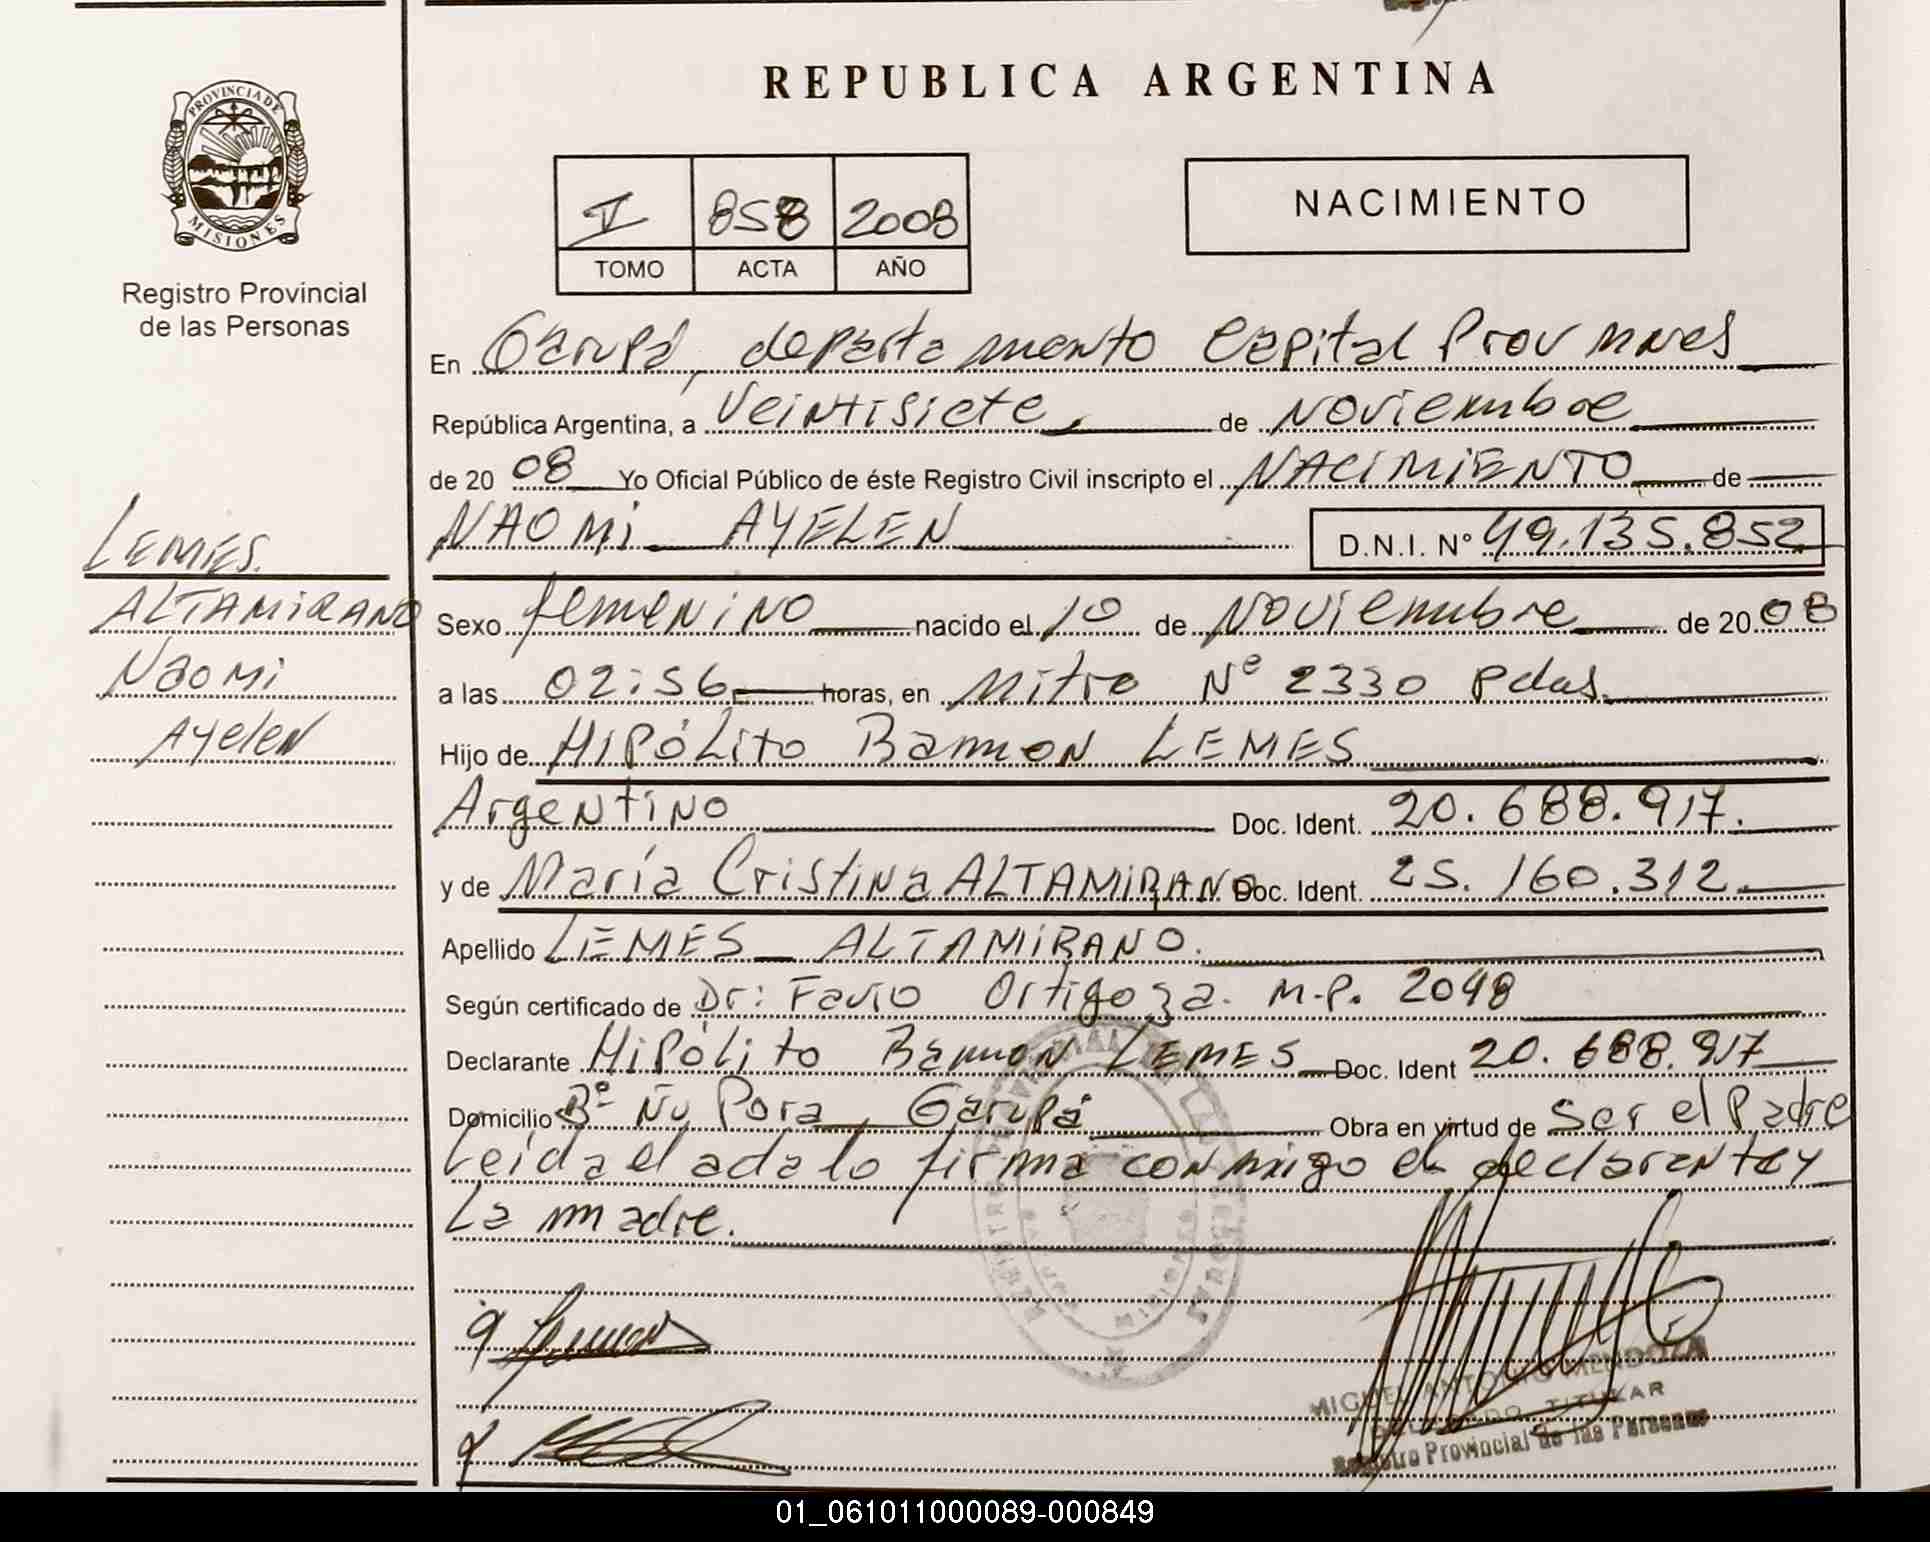 REPUBLICA ARGENTINA
PROVINCIA DE
MISIONES
Registro Provincial
de las Personas
V 858 2008
TOMO ACTA AÑO
NACIMIENTO
En Garupá, departamento Capital Prov Mnes
República Argentina, a Veintisiete de Noviembre
de 20 08 Yo Oficial Público de éste Registro Civil inscripto el NACIMIENTO de
NAOMI AYELEN D.N.I. Nº 49.135.852
LEMES.
ALTAMIRANO
Naomi
Ayelen
Sexo femenino nacido el 10 de Noviembre de 20 08
a las 02:56 horas, en Mitre Nº 2330 Pdas.
Hijo de Hipólito Ramon LEMES
Argentino Doc. Ident. 20.688.917.
y de María Cristina ALTAMIRANO Doc. Ident. 25.160.312.
Apellido LEMES ALTAMIRANO.
Según certificado de Dr: Favio Ortigoza. M.P. 2048
Declarante Hipólito Ramon LEMES Doc. Ident 20.688.917
Domicilio Bº Ñu Pora, Garupá Obra en virtud de Ser el Padre
Leída el acta lo firma conmigo el declarante y
La madre.
MIGUEL ANTONIO MENDOZA
TITULAR
Registro Provincial de las Personas
01_061011000089-000849